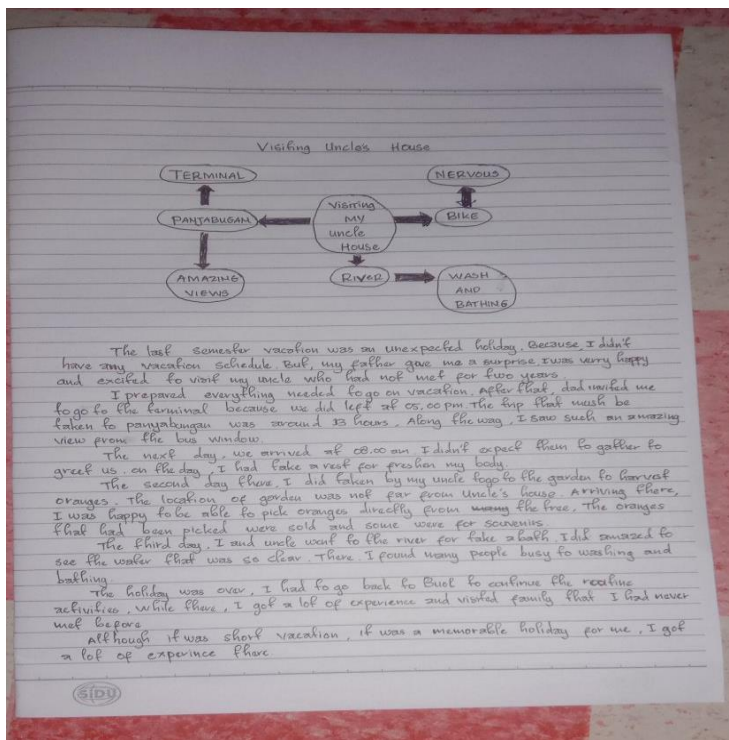 Visiting Uncle's House
TERMINAL
NERVOUS
PANJABUGAM
Visiting
MY
uncle
House
BIKE
AMAZING
VIEWS
RIVER
WASH
AND
BATHING
The last semester vacation was an unexpected holiday. Because I didn't
have any vacation schedule. But, my father gave me a surprise. I was verry happy
and excited to visit my uncle who had not met for two years.
I prepared everything needed to go on vacation. After that, dad invited me
to go to the terminal because we did left at 05.00 pm. The trip that mush be
taken to panyabungan was around 13 hours. Along the way, I saw such an amazing
view from the bus window.
The next day, we arrived at 08.00 am. I didn't expect them to gather to
greet us. on the day, I had take a rest for freshen my body.
The second day there, I did taken by my uncle to go to the garden to harvest
oranges. The location of garden was not far from uncle's house. Arriving there,
I was happy to be able to pick oranges directly from the tree. The oranges
that had been picked were sold and some were for souvenirs
The third day, I and uncle went to the river for take a bath. I did amazed to
see the water that was so clear. There. I found many people busy to washing and
bathing.
The holiday was over, I had to go back to Buol to continue the routine
activities, while there, I got a lot of experience and visited family that I had never
met before
Although it was short vacation, it was a memorable holiday for me, I got
a lot of experince there
SIDU